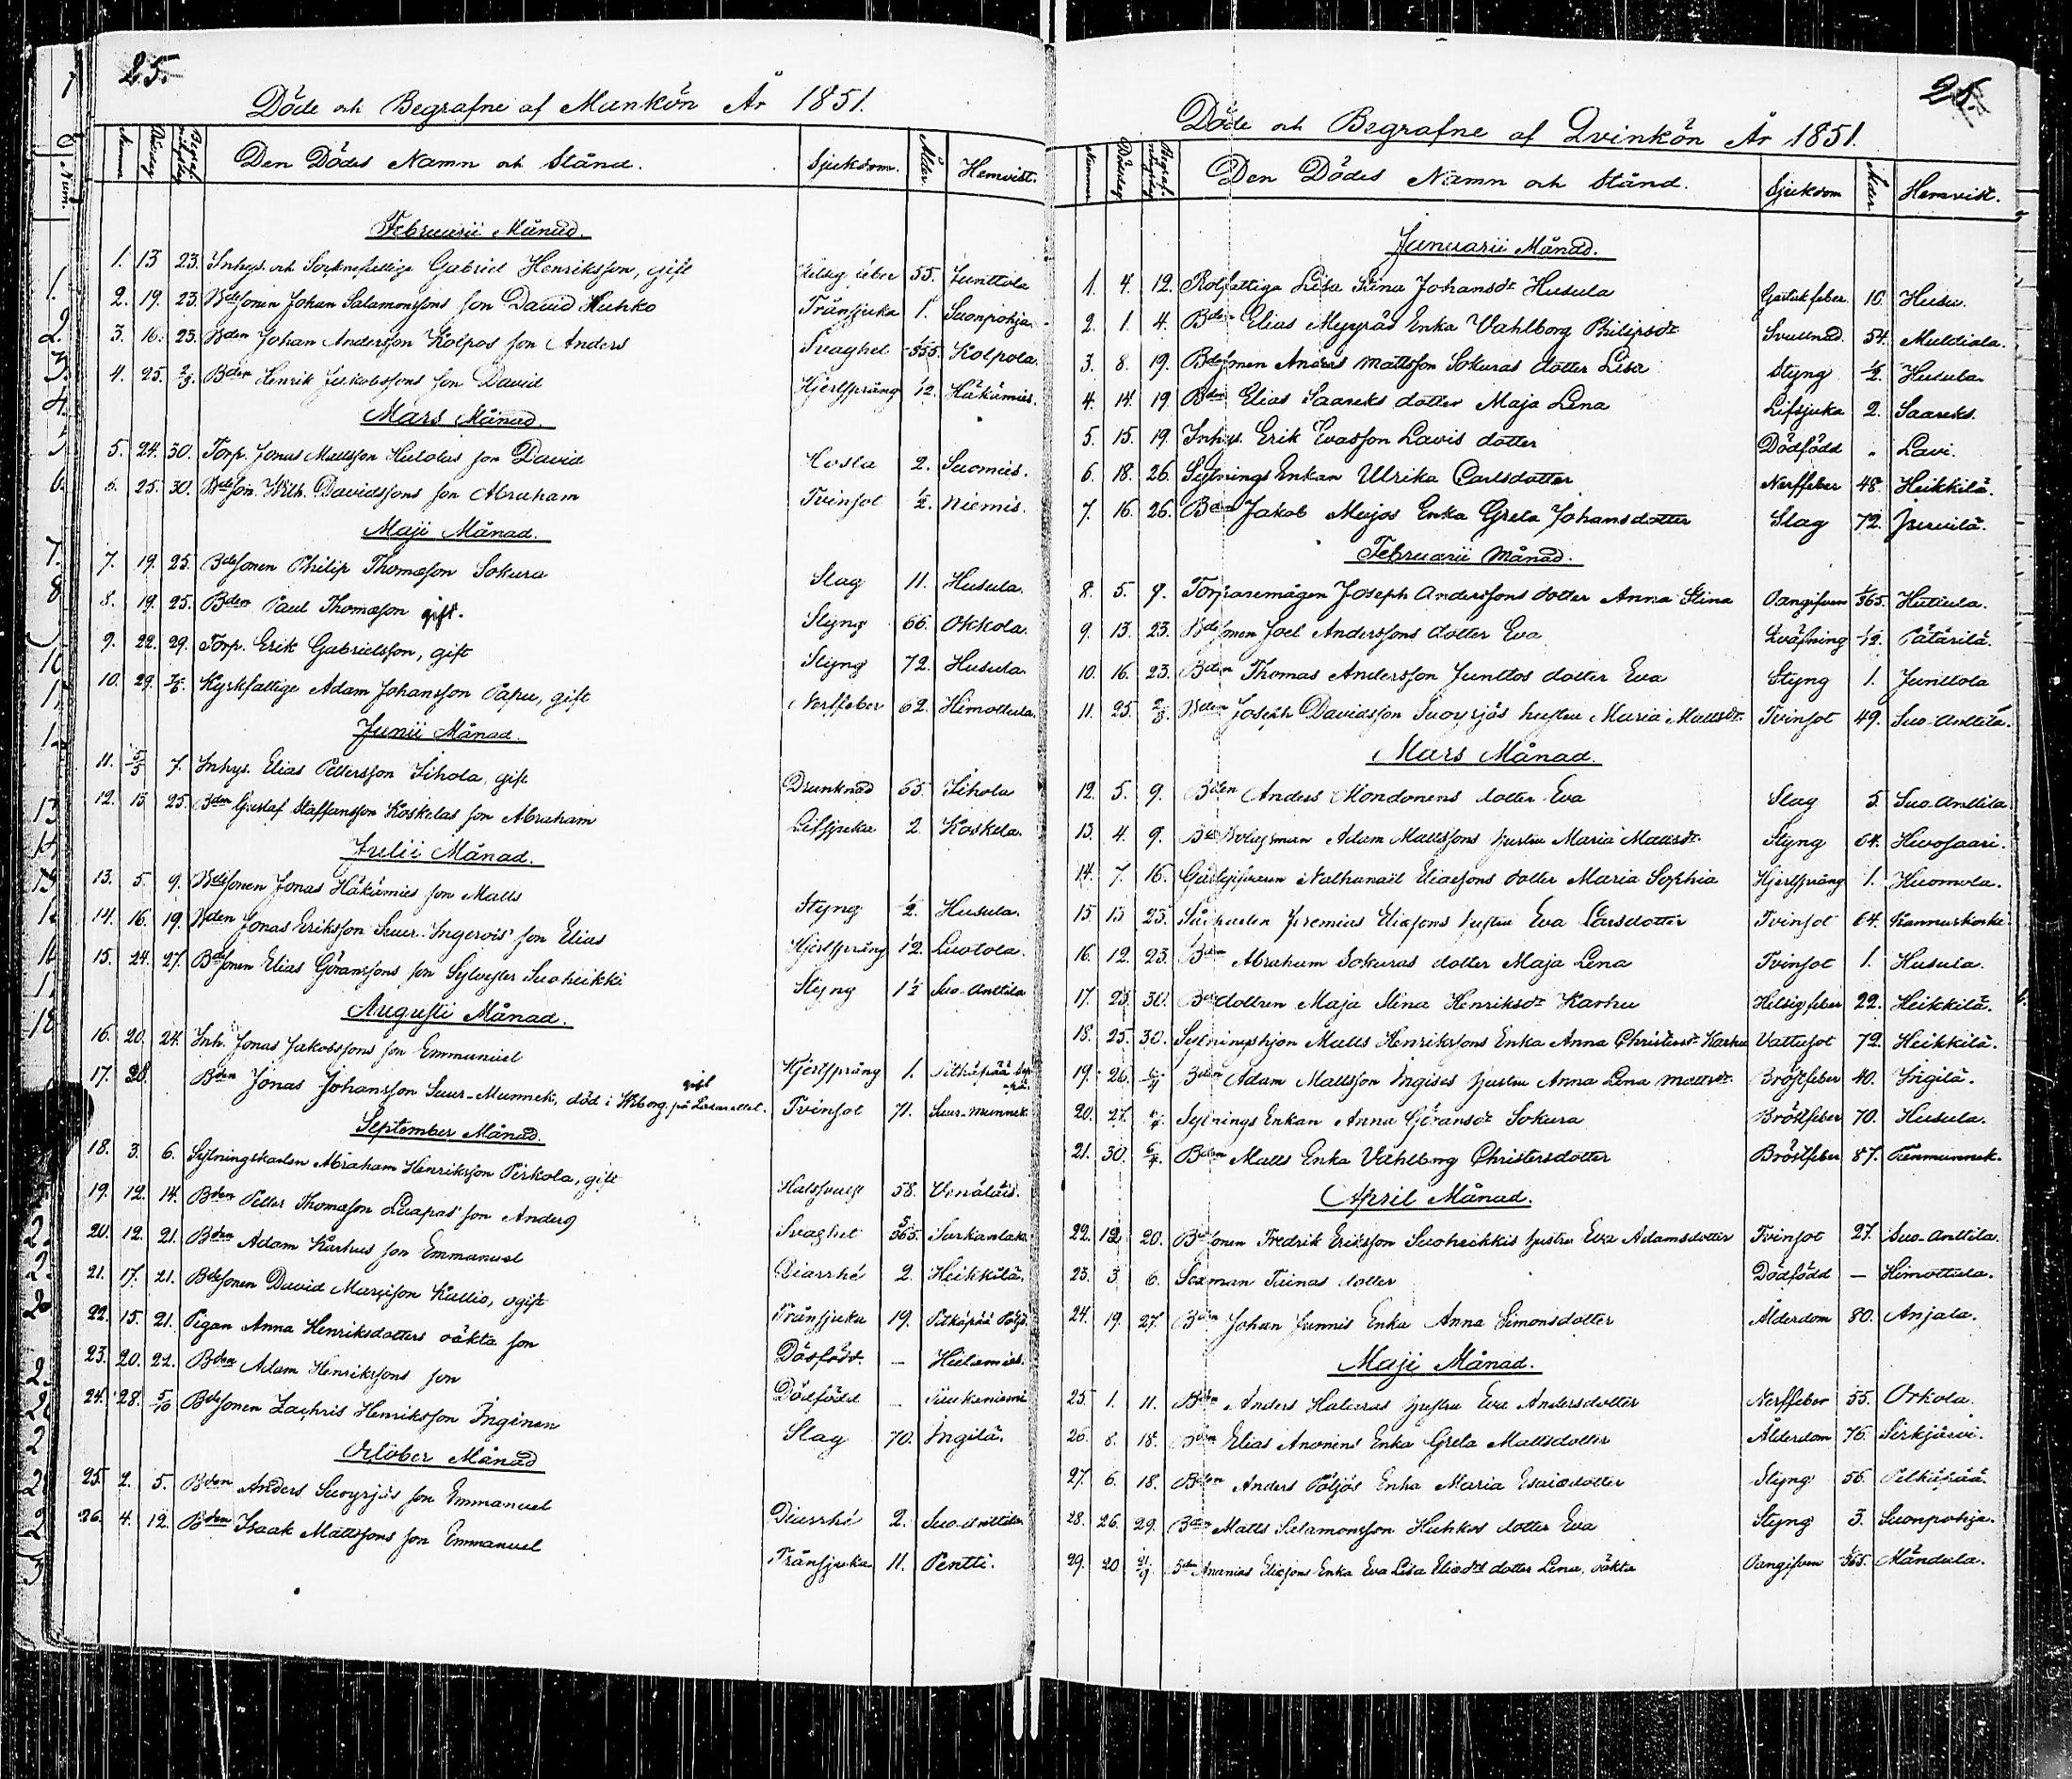 25.
Döde och Begrafne af Mankön År 1851.
Den Dödes Namn och Stånd. Sjukdom. Ålder. Hemvist.
Februarii Månad.
1. 13 23. Inhys. och Socknefattige Gabriel Henriksson, gift 55. Junttola
2. 19. 23. Bdesonen Johan Salamonssons son David Huhko Trånsjuka 1. Suonpohja.
3. 16. 23. Bden Johan Andersson Kolpos son Anders Svaghet Kolpola.
4. 25. 2/3. Bden Henrik Jakobssons son David Hjertsprång 1/2. Häkämies.
Mars Månad.
5. 24. 30. Torp. Jonas Mattsson Hutolas son David Hosta 2. Suomies.
6. 25. 30. Bdeson. Wilh. Davidssons son Abraham Tvinsot 1/2. Niemis.
Maji Månad.
7. 19. 25. Bdesonen Philip Thomasson Sokura Slag 11. Husula.
8. 19. 25. Bden Paul Thomasson gift. Styng 66. Okkola.
9. 22. 29. Torp. Erik Gabrielsson, gift Styng 72. Husula
10. 29. Kyrkfattige Adam Johansson Papu, gift Nerffeber 62. Himottula.
Junii Månad.
11. 7. Inhys. Elias Pettersson Sihola, gift Drunknad 65. Sihola
12. 13. 25. Bden Gustaf Staffansson Koskelas son Abraham Lifsjuka 2. Koskela.
Julii Månad.
13. 5. 9. Bdesonen Jonas Häkämies son Matts Styng 1/2. Husula.
14. 16. 19. Bden Jonas Eriksson Suur-Ingervis son Elias Hjertsprång 1/2. Luotola.
15. 24. 27. Bdesonen Elias Göranssons son Sylvester Suoheikki Styng 1 1/2 Suo-Anttila
Augusti Månad.
16. 20. 24. Inh. Jonas Jakobssons son Emmanuel Hjertsprång 1.
17. 28. Bden Jonas Johansson Suur-Munnek, död i Wiborg på Lasarettet. gift Tvinsot 71. Suur-Munnek.
September Månad.
18. 3. 6. Sytningskarlen Abraham Henriksson Pirkola, gift 58.
19. 12. 14. Bden Petter Thomasson Laapas son Anders Svaghet 5/365.
20. 12. 21. Bden Adam Karhus son Emmanuel Diarrhé 2. Heikkilä.
21. 17. 21. Bdesonen David Mattsson Kallio, ogift Trånsjuka 19.
22. 15. 21. Pigan Anna Henriksdotters oäkta son Dödfödd. —
23. 20. 21. Bden Adam Henrikssons son Dödfödd —
24. 28. 5/10 Bdesonen Zachris Henriksson Inginen Slag 70. Ingilä.
October Månad
25. 2. 5. Bden Anders Suoyrjös son Emmanuel Diarrhé 2. Suo-Anttila
26. 4. 12. Bden Isaak Mattssons son Emmanuel Trånsjuka 11. Pentti.
Döde och Begrafne af Qvinkön År 1851.
Den Dödes Namn och Stånd. Sjukdom Ålder. Hemvist.
Januarii Månad.
1. 4. 12. Rotfattiga Lisa Stina Johansdr Husula 10. Husu.
2. 1. 4. Bden Elias Myyräs Enka Vahlborg Philipsdr Svullnad. 54. Muldiala.
3. 8. 19. Bdesonen Anders Mattsson Sokuras dotter Lisa Styng 1/2. Husula.
4. 14. 19 Bden Elias Saareks dotter Maja Lena Lifsjuka 2. Saareks.
5. 15. 19. Inhys. Erik Evasson Lavis dotter Dödfödd Lavi.
6. 18. 26. Sytnings Enkan Ulrika Carlsdotter Nerffeber 48. Heikkilä.
7. 16. 26. Bden Jakob Mujos Enka Greta Johansdotter Slag 72. Junnilä.
Februarii Månad.
8. 5. 9. Torparemågen Joseph Anderssons dotter Anna Stina Oangifven 1/365. Hutula.
9. 13. 23. Bdesonen Joel Anderssons dotter Eva Qväfning 1/12. Pätärilä.
10. 16. 23. Bden Thomas Andersson Junttos dotter Eva Styng 1. Junttola
11. 25. 2/3. Bden Joseph Davidsson Suoyrjös hustru Maria Mattsdr. Tvinsot 49. Suo-Anttila.
Mars Månad.
12. 5. 9. Bden Anders Mondonens dotter Eva Slag 5. Suo-Anttila
13. 4. 9. Adam Mattssons hustru Maria Mattsdr. Styng 64. Hevosaari.
14. 7. 16. Nathanaël Eliassons dotter Maria Sophia Hjertsprång 1. Huomola.
15 13 23. Jeremias Eliassons hustru Eva Larsdotter Tvinsot 64. Kannuskoski
16. 12. 23. Bden Abraham Sokuras dotter Maja Lena Tvinsot 1. Husula.
17. 23. 30. Bdedottren Maja Stina Henriksdr Karhu Hetsigfeber 22. Heikkilä.
18. 25. 30. Sytningshjon Matts Henrikssons Enka Anna Christersdr Karhu Vattusot 72. Heikkilä.
19. 26. 6/4 Bden Adam Mattsson Ingises hustru Anna Lena Mattsdr. Bröstfeber 40. Ingilä.
20. 27. Sytnings Enkan Anna Göransdr Sokura Bröstfeber 70. Husula.
21. 30. 6/4. Bden Matts Enka Vahlborg Christersdotter Bröstfeber 87.
April Månad.
22. 12. 20. Bdesonen Fredrik Eriksson Suoheikkis hustru Eva Adamsdotter Tvinsot 27. Suo-Anttila.
23. 3. 6. Sexman Tuinas dotter Dödfödd — Himottula.
24. 19. 27. Bden Johan Junnis Enka Anna Simonsdotter Ålderdom 80. Anjala.
Maji Månad.
25. 1. 11. Bden Anders Hataras hustru Eva Andersdotter Nerffeber 55. Orkola.
26. 8. 18. Bden Elias Anonens Enka Greta Mattsdotter Ålderdom 76. Sirkjärvi.
27. 6. 18. Bden Anders Pöljös Enka Maria Esaiædotter Styng 56. Pitkäpää.
28. 26. 29. Bden Matts Salamonsson Huhkos dotter Eva Styng 3. Suonpohja.
29. 20 21/9 Bden Ananias Eliassons Enka Eva Lisa Eliædr dotter Lena, oäkta Oangifven Mändula.